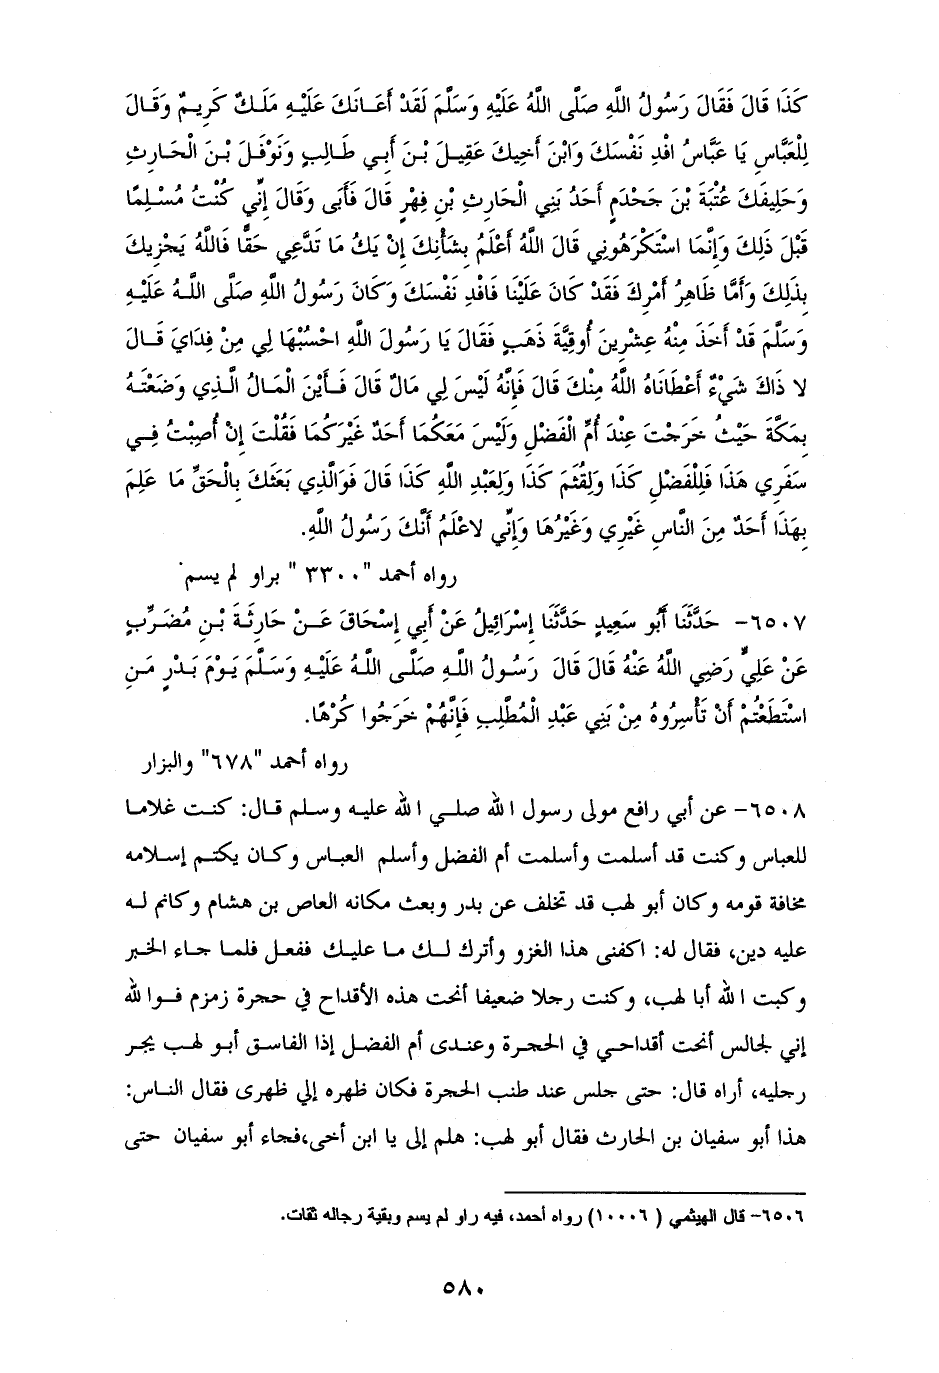 كَذَا قَالَ فَقَالَ رَسُولُ اللَّهِ صَلَّى اللَّهُ عَلَيْهِ وَسَلَّمَ لَقَدْ أَعَانَكَ عَلَيْهِ مَلَكٌ كَرِيمٌ وَقَالَ
لِلْعَبَّاسِ يَا عَبَّاسُ افْدِ نَفْسَكَ وَابْنَ أَخِيكَ عَقِيلَ بْنَ أَبِي طَالِبٍ وَنَوْفَلَ بْنَ الْحَارِثِ
وَحَلِيفَكَ عُتْبَةَ بْنَ جَحْدَمٍ أَحَدُ بَنِي الْحَارِثِ بْنِ فِهْرٍ قَالَ فَأَبَى وَقَالَ إِنِّي كُنْتُ مُسْلِمًا
قَبْلَ ذَلِكَ وَإِنَّمَا اسْتَكْرَهُونِي قَالَ اللَّهُ أَعْلَمُ بِشَأْنِكَ إِنْ يَكُ مَا تَدَّعِي حَقًّا فَاللَّهُ يَجْزِيكَ
بِذَلِكَ وَأَمَّا ظَاهِرُ أَمْرِكَ فَقَدْ كَانَ عَلَيْنَا فَافْدِ نَفْسَكَ وَكَانَ رَسُولُ اللَّهِ صَلَّى اللَّهُ عَلَيْهِ
وَسَلَّمَ قَدْ أَخَذَ مِنْهُ عِشْرِينَ أُوقِيَّةَ ذَهَبٍ فَقَالَ يَا رَسُولَ اللَّهِ احْسُبْهَا لِي مِنْ فِدَايَ قَالَ
لا ذَاكَ شَيْءٌ أَعْطَانَاهُ اللَّهُ مِنْكَ قَالَ فَإِنَّهُ لَيْسَ لِي مَالٌ قَالَ فَأَيْنَ الْمَالُ الَّذِي وَضَعْتَهُ
بِمَكَّةَ حَيْثُ خَرَجْتَ عِنْدَ أُمِّ الْفَضْلِ وَلَيْسَ مَعَكُمَا أَحَدٌ غَيْرَكُمَا فَقُلْتَ إِنْ أُصِبْتُ فِي
سَفَرِي هَذَا فَلِلْفَضْلِ كَذَا وَلِقُثَمَ كَذَا وَلِعَبْدِ اللَّهِ كَذَا قَالَ فَوَالَّذِي بَعَثَكَ بِالْحَقِّ مَا عَلِمَ
بِهَذَا أَحَدٌ مِنَ النَّاسِ غَيْرِي وَغَيْرُهَا وَإِنِّي لاعْلَمُ أَنَّكَ رَسُولُ اللَّهِ.
رواه أحمد "٣٣٠٠" براو لم يسم
٦٥٠٧- حَدَّثَنَا أَبُو سَعِيدٍ حَدَّثَنَا إِسْرَائِيلُ عَنْ أَبِي إِسْحَاقَ عَنْ حَارِثَةَ بْنِ مُضَرِّبٍ
عَنْ عَلِيٍّ رَضِي اللَّهُ عَنْهُ قَالَ قَالَ رَسُولُ اللَّهِ صَلَّى اللَّهُ عَلَيْهِ وَسَلَّمَ يَوْمَ بَدْرٍ مَنِ
اسْتَطَعْتُمْ أَنْ تَأْسِرُوهُ مِنْ بَنِي عَبْدِ الْمُطَّلِبِ فَإِنَّهُمْ خَرَجُوا كُرْهًا.
رواه أحمد "٦٧٨" والبزار
٦٥٠٨- عن أبي رافع مولى رسول الله صلي الله عليه وسلم قال: كنت غلاما
للعباس وكنت قد أسلمت وأسلمت أم الفضل وأسلم العباس وكان يكتم إسلامه
مخافة قومه وكان أبو لهب قد تخلف عن بدر وبعث مكانه العاص بن هشام وكانم له
عليه دين، فقال له: اكفنى هذا الغزو وأترك لك ما عليك ففعل فلما جاء الخبر
وكبت الله أبا لهب، وكنت رجلا ضعيفا أنحت هذه الأقداح في حجرة زمزم فوالله
إني لجالس أنحت أقداحي في الحجرة وعندى أم الفضل إذا الفاسق أبو لهب يجر
رجليه، أراه قال: حتى جلس عند طنب الحجرة فكان ظهره إلي ظهرى فقال الناس:
هذا أبو سفيان بن الحارث فقال أبو لهب: هلم إلى يا ابن أخى،فجاء أبو سفيان حتى
٦٥٠٦- قال الهيثمي ( ١٠٠٠٦) رواه أحمد، فيه راو لم يسم وبقية رجاله ثقات.
٥٨٠